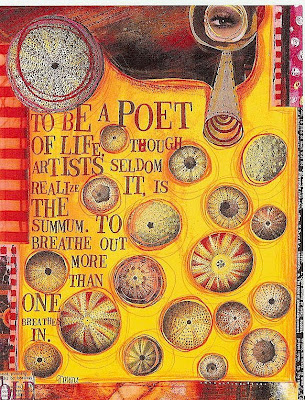 TO BE A POET
OF LIFE, THOUGH
ARTISTS SELDOM
REALIZE IT, IS
THE
SUMMUM. TO
BREATHE OUT
MORE
THAN
ONE
BREATHES
IN.